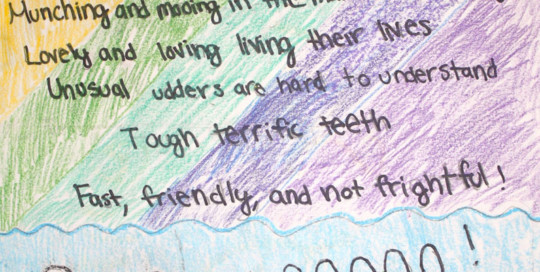 Munching and mooing in the
Lovely and loving living their lives
Unusual udders are hard to understand
Tough terrific teeth
Fast, friendly, and not frightful!